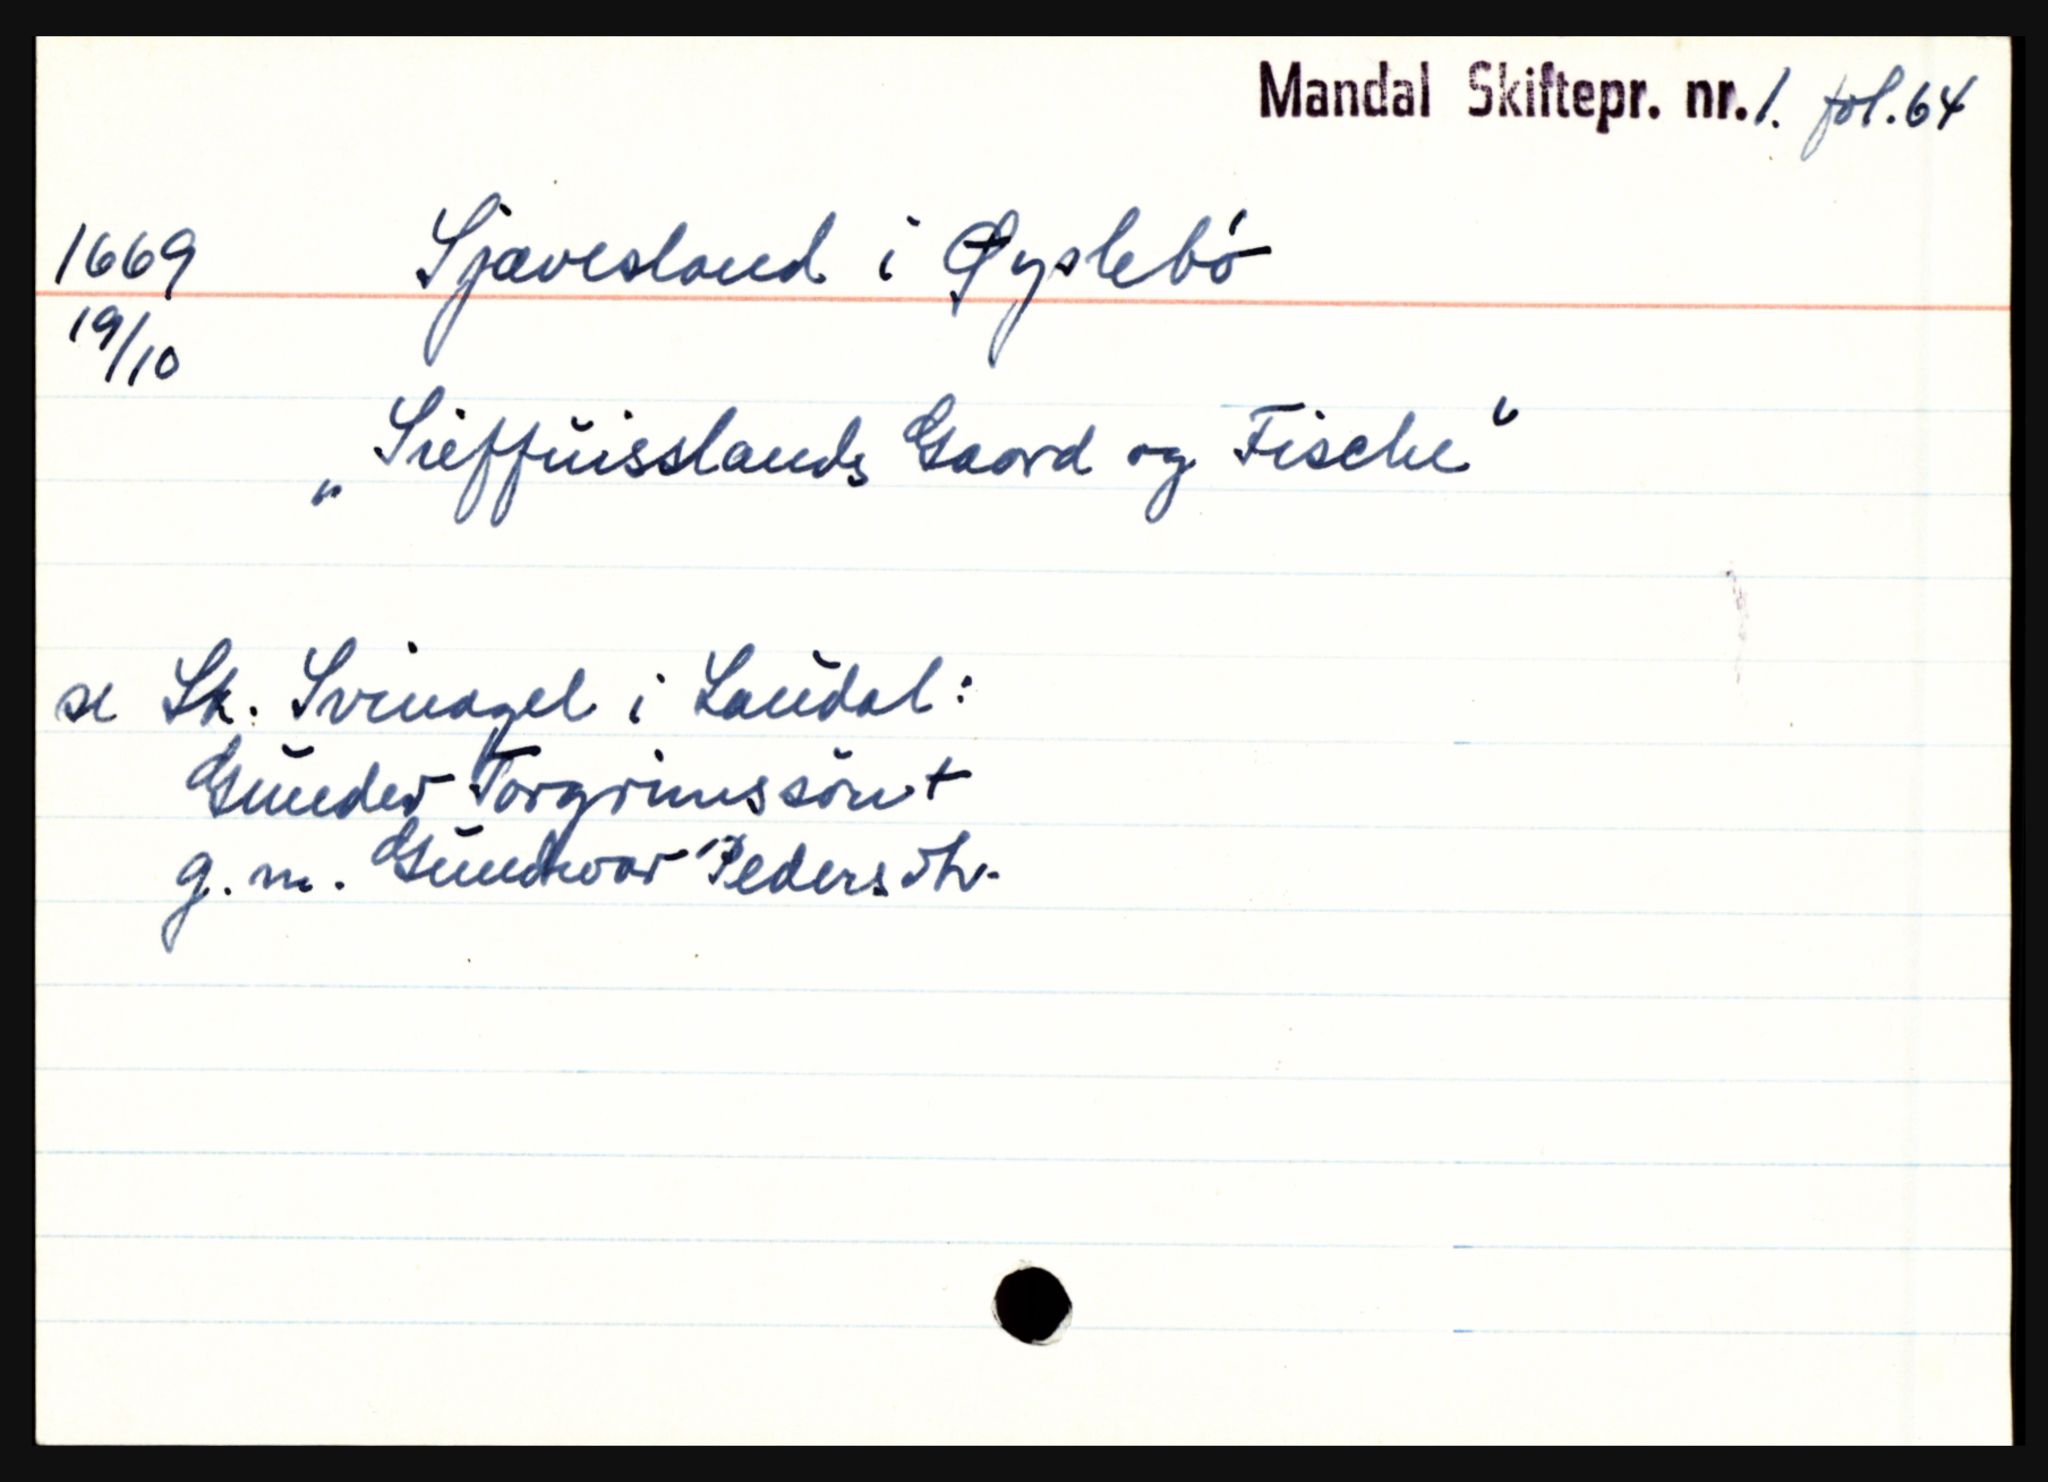 Mandal Skiftepr. nr. 1. fol. 64
1669 Sjævesland i Øyslebö
19/10
„Sieffuisslands Gaard og Fische“
se Sk. Svinagel i Laudal:
Gunder Torgrimssön +
g. m. Gundvor Pedersdtr.